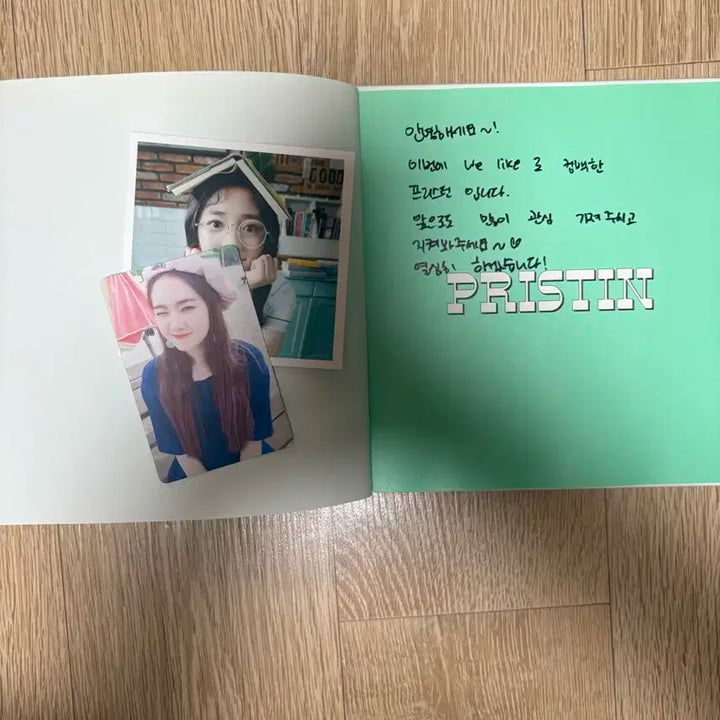 안녕하세요~!
이번에 We like 로 컴백한
프리스틴 입니다.
앞으로도 많이 관심 가져주시고
지켜봐주세요~♡
열심히 하겠습니다!
PRISTIN
GOOD